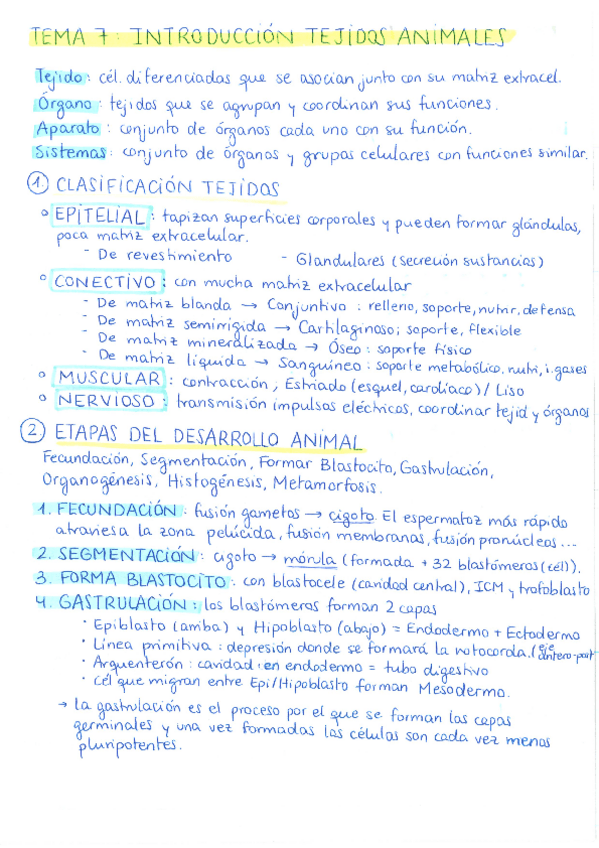 TEMA 7: INTRODUCCIÓN TEJIDOS ANIMALES
Tejido: cél. diferenciadas que se asocian junto con su matriz extracel.
Órgano: tejidos que se agrupan y coordinan sus funciones.
Aparato: conjunto de órganos cada uno con su función.
Sistemas: conjunto de órganos y grupos celulares con funciones similar.
1. CLASIFICACIÓN TEJIDOS
° EPITELIAL: tapizan superficies corporales y pueden formar glándulas,
poca matriz extracelular.
- De revestimiento - Glandulares (secreción sustancias)
° CONECTIVO: con mucha matriz extracelular
- De matriz blanda → Conjuntivo: relleno, soporte, nutrir, defensa
- De matriz semirrigida → Cartilaginoso; soporte, flexible
- De matriz mineralizada → Óseo: soporte físico
- De matriz líquida → Sanguíneo: soporte metabólico. nutri, i.gases
° MUSCULAR: contracción; Estriado (esquel, cardíaco) / Liso
° NERVIOSO: transmisión impulsos eléctricos, coordinar tejid y órganos
2. ETAPAS DEL DESARROLLO ANIMAL
Fecundación, Segmentación, Formar Blastocito, Gastrulación,
Organogénesis, Histogénesis, Metamorfosis.
1. FECUNDACIÓN: fusión gametos → cigoto. El espermatoz más rápido
atraviesa la zona pelúcida, fusión membranas, fusión pronúcleos...
2. SEGMENTACIÓN: cigoto → mórula (formada + 32 blastómeros (cél).
3. FORMA BLASTOCITO: con blastocele (cavidad central), ICM y trofoblasto
4. GASTRULACIÓN: los blastómeros forman 2 capas
· Epiblasto (arriba) y Hipoblasto (abajo) = Endodermo + Ectodermo
· Línea primitiva: depresión donde se formará la notocorda. (eje antero-post
· Arquenterón: cavidad en endodermo = tubo digestivo
· Cél que migran entre Epi/Hipoblasto forman Mesodermo.
→ la gastrulación es el proceso por el que se forman las capas
germinales y una vez formadas las células son cada vez menos
pluripotentes.